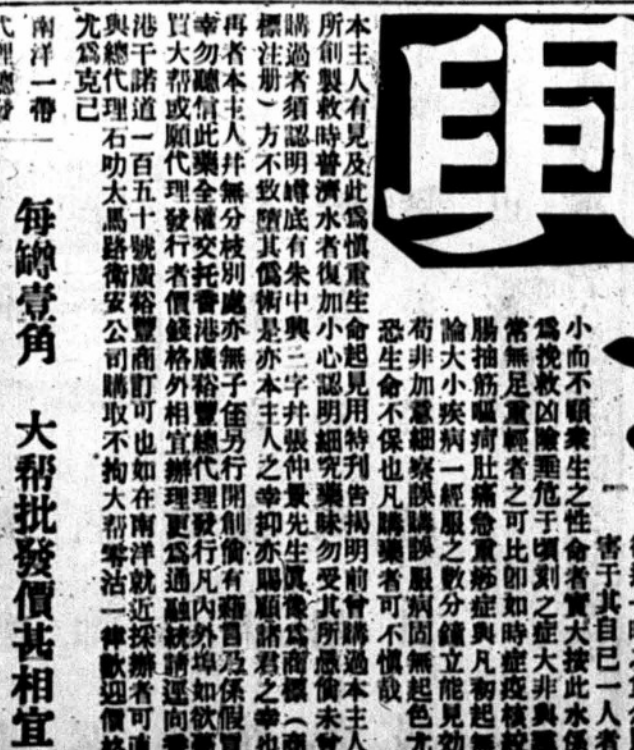 興
害于其自己一人者
小而不顧衆生之性命者實大按此水係
爲挽救凶險垂危于頃刻之症大非與
常無足重輕者之可比卽如時症疫核
腸抽筋嘔疴肚痛急重痧症與凡初起無
論大小疾病一經服之數分鐘立能見効
苟非加意細察誤購誤服病固無起色尤
恐生命不保也凡購藥者可不慎哉
本主人有見及此爲慎重生命起見用特刊告揭明前曾購過本主人
所創製救時普濟水者復加小心認明細究藥味勿受其所愚倘未曾
購過者須認明罇底有朱中興三字幷張仲景先生眞像爲商標（商
標注册）方不致墮其僞術是亦本主人之幸抑亦賜顧諸君之幸也
再者本主人幷無分枝別處亦無子侄另行開創倘有藉冒乃係假冒
幸勿聽信此藥全權交托香港廣裕豐總代理發行凡內外埠如欲
買大帮或願代理發行者價錢格外相宜辦理更爲通融統請逕向香
港干諾道一百五十號廣裕豐商訂可也如在南洋就近採辦者可
與總代理石叻大馬路衛安公司購取不拘大帮零沽一律歡迎價格
尤爲克己
南洋一帶
代理總發
每罇壹角 大帮批發價甚相宜